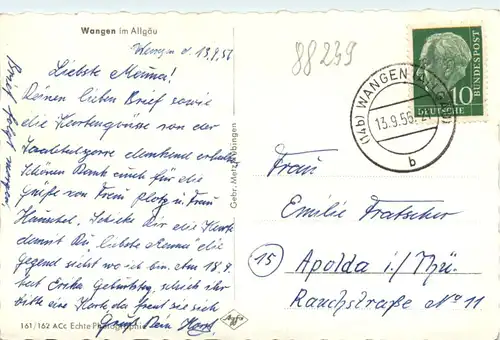 Wangen im Allgäu
Wangen d. 13.9.56
88239
Liebste Mamma!
Deinen lieben Brief sowie
die Kartengrüsse von der
dankend erhalten
Schönen Dank auch für die
Grüße von Frau Plotz u. Frau
Schicke Dir die Karte
damit Du, liebste Mamma die
Gegend siehst wo ich bin. Am 18.9.
hat Erika Geburtstag, schick ihr
bitte eine Karte da freut sie sich
Gruß Dein Horst
Brief folgt morgen
Gebr. Metz, Tübingen
161/162 ACc Echte Photographie
Agfa
(14b) WANGEN (ALLGÄU)
13.9.56
b
10
DEUTSCHE
BUNDESPOST
Frau
Emilie Fratscher
15
Apolda i./Thü.
Rauchstraße No 11